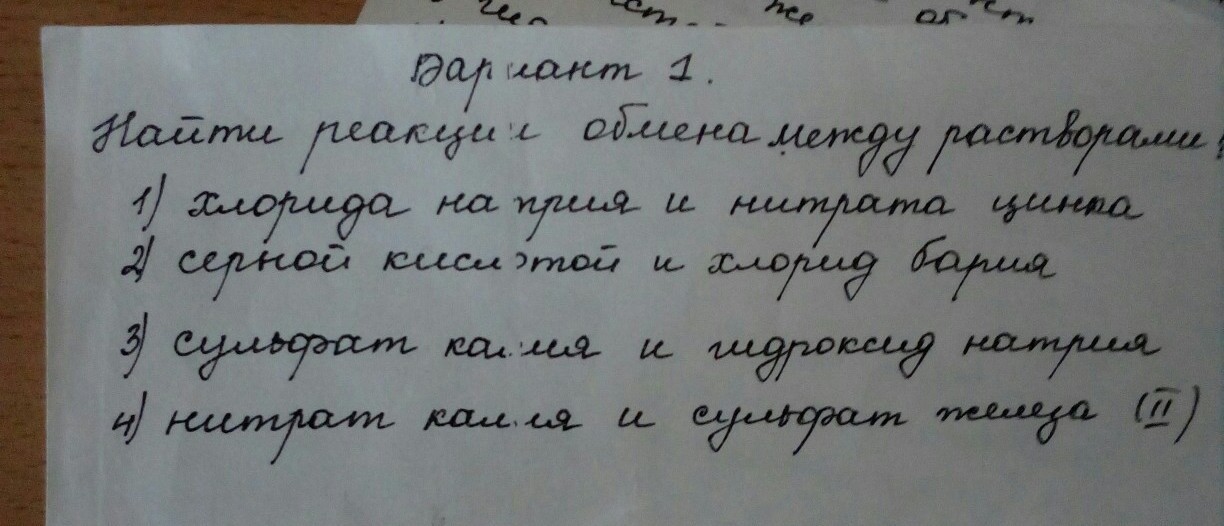 Вариант 1.
Найти реакции обмена между растворами:
1) хлорида натрия и нитрата цинка
2) серной кислотой и хлорид бария
3) сульфат калия и гидроксид натрия
4) нитрат калия и сульфат железа (II)